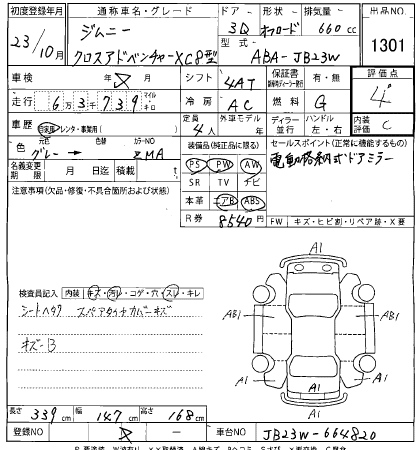 初度登録年月 通称車名・グレード ドア 形状 排気量 出品NO
23/10月 ジムニー 3D オフロード 660cc
クロスアドベンチャーXC8型 型式 ABA-JB23W 1301
車検 シフト 4AT 保証書 有・無 評価点
走行 6万3千739 マイル キロ 冷房 AC 燃料 G 4
車歴 自家用・レンタ・事業用( ) 定員 4人 外車モデル ディーラー 並行 ハンドル 左・右 内装評価 C
色 元色 グレー → 色替 カラーNO ZMA
装備品(純正品に限る) セールスポイント(正常に機能するもの)
PS PW AW 電動格納式ドアミラー
名義変更期限 月 日迄 積載 t SR TV ナビ
注意事項(欠品・修復・不具合箇所および状態) 本革 エアB ABS
R券 8540円 FW キズ・ヒビ割・リペア跡・X要
A1
検査員記入 内装 キズ・汚レ・コゲ・穴・スレ・キレ
シートヘタリ スペアタイヤカバーキズ
AB1 AB1
キズ-B
A1 A1
A1
A1
長さ 339cm 幅 147cm 高さ 168cm
登録NO 車台NO JB23W-664820